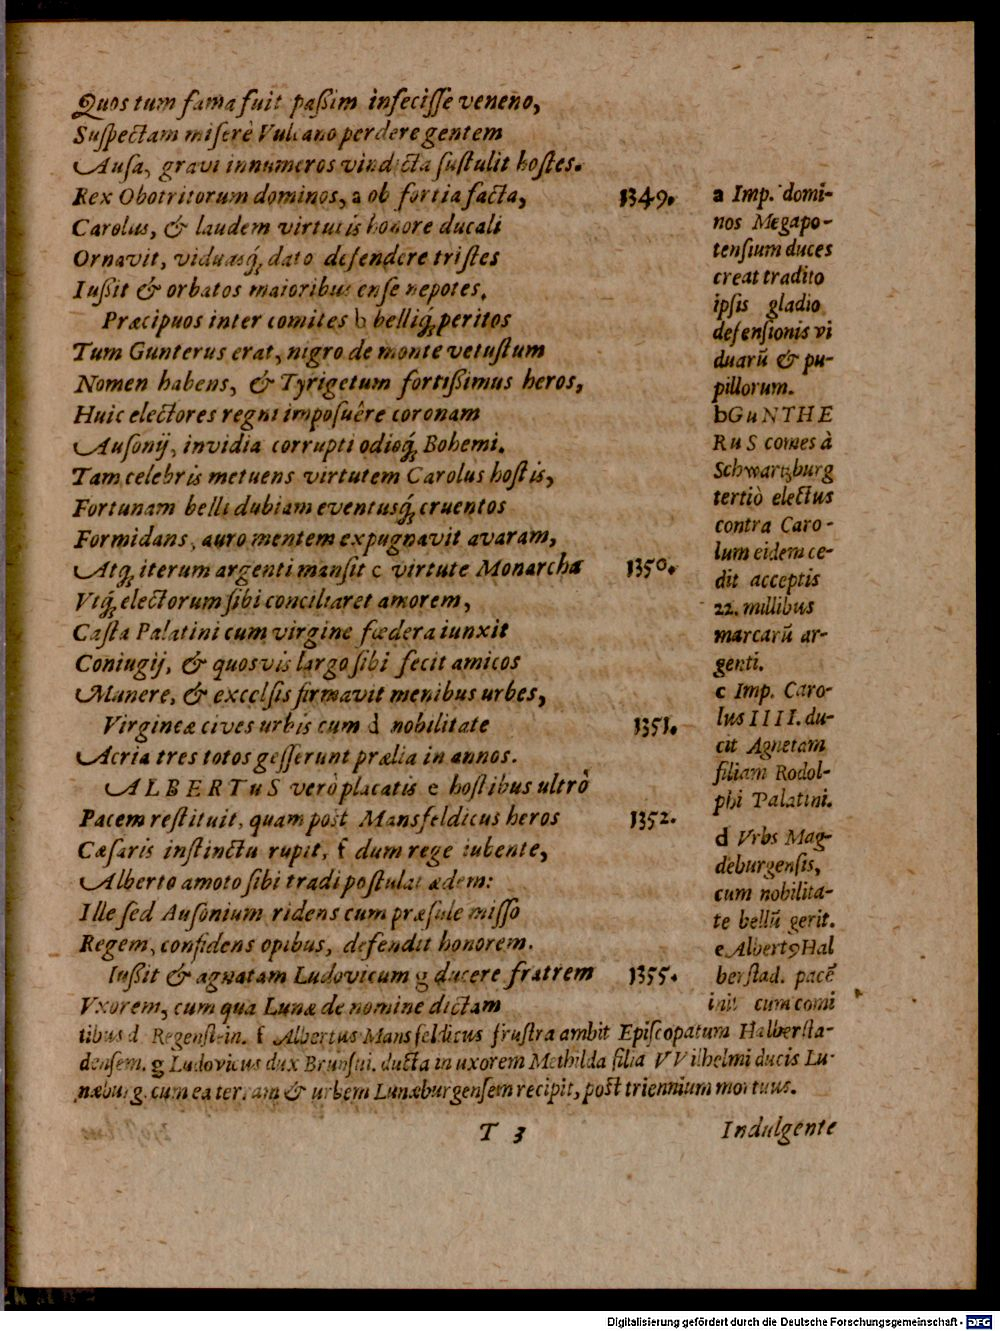 Quos tum fama fuit paßim infeciſſe veneno,
Suſpectam miſerè Vulcano perdere gentem
Auſa, gravi innumeros vindicta ſuſtulit hoſtes.
Rex Obotritorum dominos, a ob fortia facta,
Carolus, & laudem virtutis honore ducali
Ornavit, viduasq́; dato defendere triſtes
Iußit & orbatos maioribus enſe nepotes.
Præcipuos inter comites b belliq́; peritos
Tum Gunterus erat, nigro de monte vetuſtum
Nomen habens, & Tyrigetum fortißimus heros,
Huic electores regni impoſuêre coronam
Auſonij, invidia corrupti odioq́; Bohemi.
Tam celebris metuens virtutem Carolus hoſtis,
Fortunam belli dubiam eventusq́; cruentos
Formidans, auro mentem expugnavit avaram,
Atq; iterum argenti manſit c virtute Monarcha
Vtq́; electorum ſibi conciliaret amorem,
Caſta Palatini cum virgine fœdera iunxit
Coniugij, & quosvis largo ſibi fecit amicos
Munere, & excelſis firmavit menibus urbes,
Virgineæ cives urbis cum d nobilitate
Acria tres totos geſſerunt prælia in annos.
ALBERTuS verò placatis e hoſtibus ultrò
Pacem reſtituit, quam poſt Mansfeldicus heros
Cæſaris inſtinctu rupit, f dum rege iubente,
Alberto amoto ſibi tradi poſtulat ædem:
Ille ſed Auſonium ridens cum præſule miſſo
Regem, confidens opibus, defendit honorem.
Iußit & agnatam Ludovicum g ducere fratrem
Vxorem, cum qua Lunæ de nomine dictam
1349.
1350.
1351.
1352.
1355.
a Imp. domi-
nos Megapo-
tenſium duces
creat tradito
ipſis gladio
defenſionis vi
duarũ & pu-
pillorum.
b GuNTHE
RuS comes à
Schwartzburg
tertiò electus
contra Caro-
lum eidem ce-
dit acceptis
22. millibus
marcarũ ar-
genti.
c Imp. Caro-
lus IIII. du-
cit Agnetam
filiam Rodol-
phi Palatini.
d Vrbs Mag-
deburgenſis,
cum nobilita-
te bellũ gerit.
e Albertꝰ Hal
berſtad. pacẽ
init cum comi
tibus d. Regenſtein. f Albertus Mansfeldicus fruſtra ambit Epiſcopatum Halberſta-
denſem. g Ludovicus dux Brunſui. ducta in uxorem Methilda filia VVilhelmi ducis Lu-
næburg. cum ea terram & urbem Lunæburgenſem recipit, poſt triennium mortuus.
T 3
Indulgente
Digitalisierung gefördert durch die Deutsche Forschungsgemeinschaft - DFG